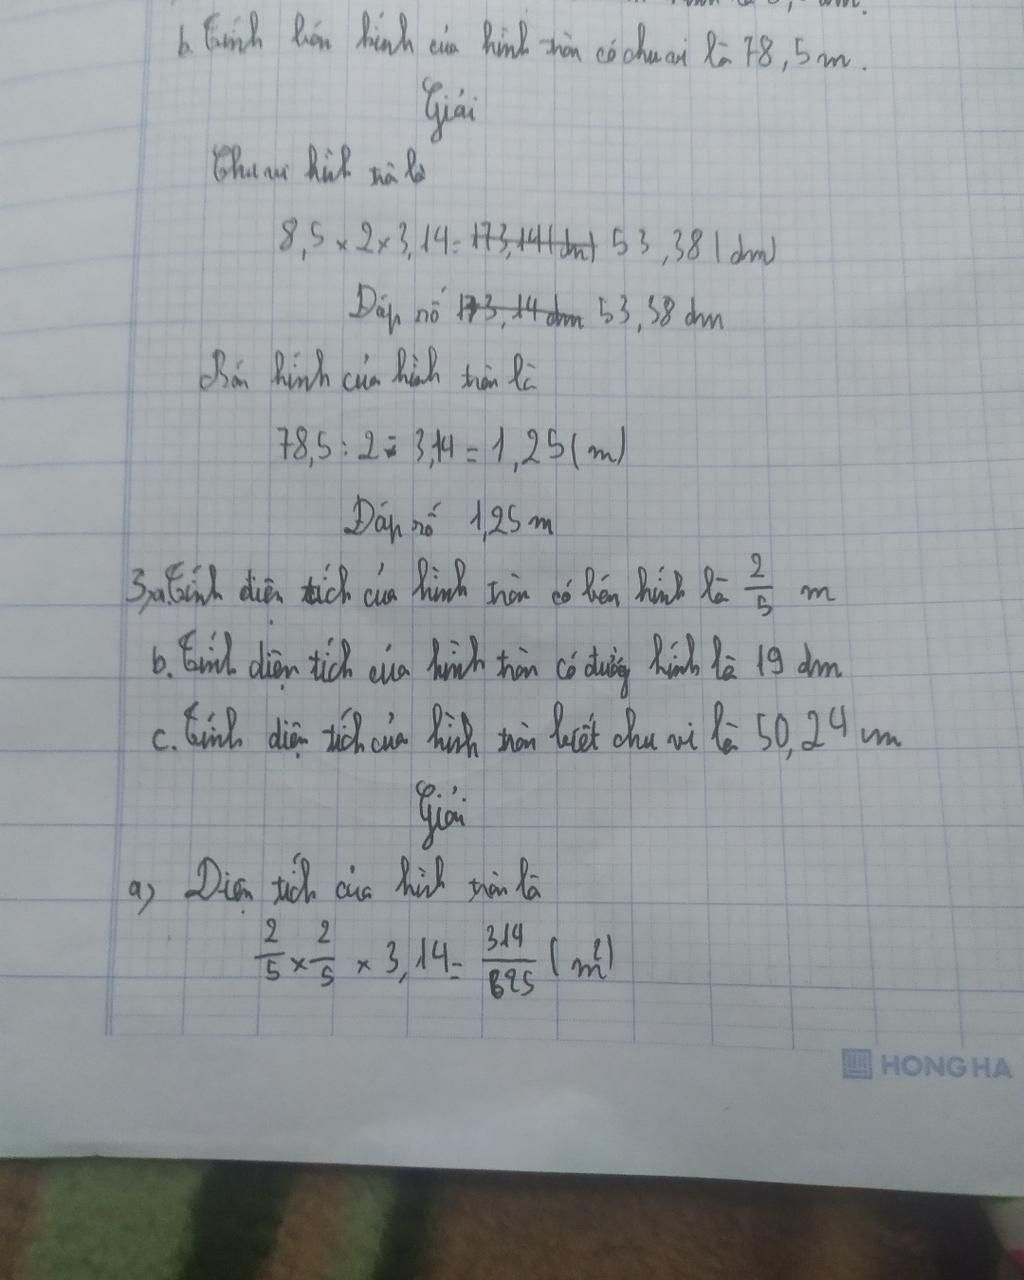 b. Tính bán kính của hình tròn có chu vi là 78,5 m.
Giải
Chu vi hình tròn là
8,5 × 2 × 3,14 = 173,14 (dm) 53,38 (dm)
Đáp số 173,14 dm 53,38 dm
Bán kính của hình tròn là
78,5 : 2 : 3,14 = 1,25 (m)
Đáp số 1,25 m
3, a. Tính diện tích của hình tròn có bán kính là 2/5 m
b. Tính diện tích của hình tròn có đường kính là 19 dm
c. Tính diện tích của hình tròn biết chu vi là 50,24 cm
Giải
a) Diện tích của hình tròn là
2/5 × 2/5 × 3,14 = 314/625 (m²)
HONG HA